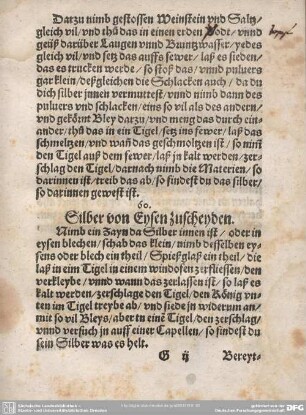 Darzu nimb gestossen Weinstein vnd Saltz
gleich vil/ vnd thů das in einen erden Podt/ vnnd
geüß darüber Laugen vnnd Bruntzwasser/ yedes
gleich vil/ vnd setz das auffs fewer/ laß es sieden/
das es trucken werde/ so stoß das/ vnnd puluers
gar klein/ deßgleichen die Schlacken auch/ da du
dich silber jnnen vermuttest/ vnnd nimb dann des
puluers vnd schlacken/ eins so vil als des andern/
vnd gekörnt Bley darzu/ vnd meng das durch ein-
ander/ thů das in ein Tigel/ setz ins fewer/ laß das
schmeltzen/ vnd wañ das geschmoltzen ist/ so nim̃
den Tigel auß dem fewer/ laß jn kalt werden/ zer-
schlag den Tigel/ darnach nimb die Materien/ so
darinnen ist/ treib das ab/ so findest du das silber/
so darinnen gewest ist.
60.
Silber von Eysen zuscheyden.
Nimb ein Zayn da Silber innen ist/ oder in
eysen blechen/ schab das klein/ nimb desselben ey-
sens oder blech ein theil/ Spießglaß ein theil/ die
laß in eim Tigel in einem windofen zerfliessen/ den
verkleybe/ vnnd wann das zerlassen ist/ so laß es
kalt werden/ zerschlage den Tigel/ den König vn-
ten im Tigel treybe ab/ vnd siede jn widerumb an-
mit so vil Bleys/ aber in eine Tigel/ den zerschlag/
vnnd versuch jn auff einer Capellen/ so findest du
sein Silber was es helt.
G ij Bereyt-